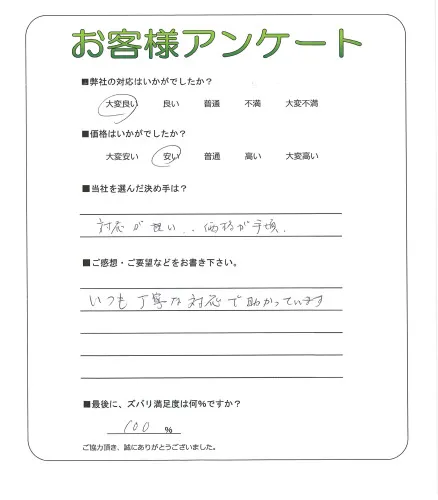 お客様アンケート
■弊社の対応はいかがでしたか?
大変良い 良い 普通 不満 大変不満
■価格はいかがでしたか?
大変安い 安い 普通 高い 大変高い
■当社を選んだ決め手は?
対応が 、価格が手頃.
■ご感想・ご要望などをお書き下さい。
いつも丁寧な対応で助かっています
■最後に、ズバリ満足度は何%ですか?
100 %
ご協力頂き、誠にありがとうございました。